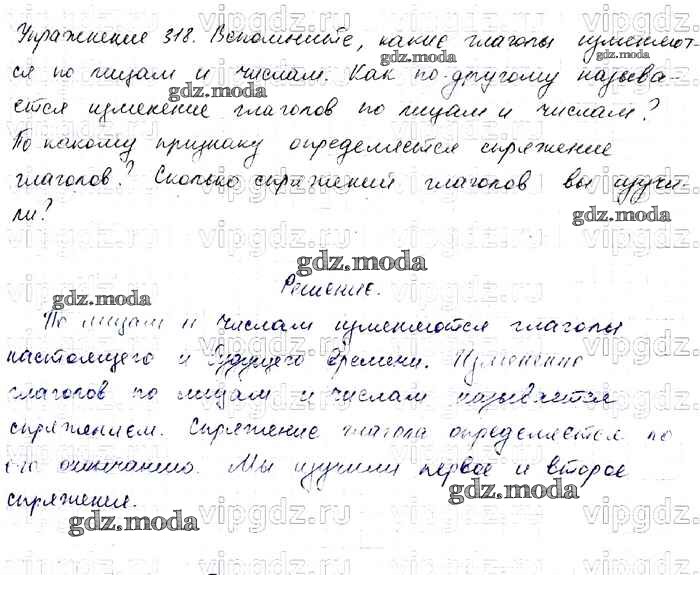 Упражнение 318. Вспомните, какие глаголы изменяют-
ся по лицам и числам. Как по-другому называ-
ется изменение глаголов по лицам и числам?
По какому признаку определяется спряжение
глаголов? Сколько спряжений глаголов вы изучи-
ли?
Решение.
По лицам и числам изменяются глаголы
настоящего и будущего времени. Изменение
глаголов по лицам и числам называется
спряжением. Спряжение глагола определяется по
его окончанию. Мы изучили первое и второе
спряжения.
gdz.moda
gdz.moda
gdz.moda
gdz.moda
gdz.moda
gdz.moda
gdz.moda
vipgdz.ru